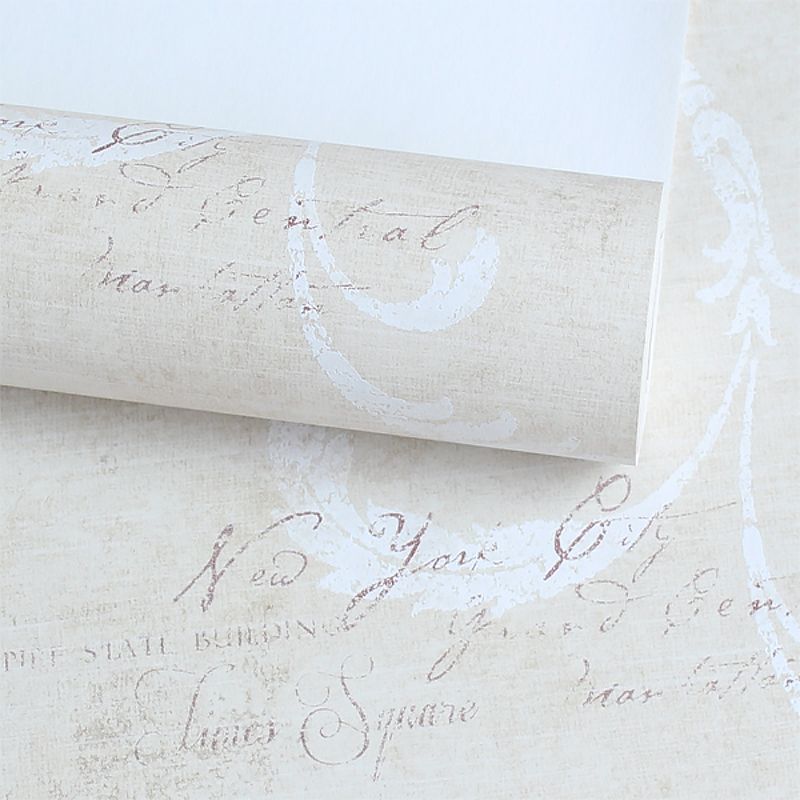 York City
Grand Central
Manhattan
New York City
Grand Cen
PIRE STATE BUILDING
Manhattan
Times Square